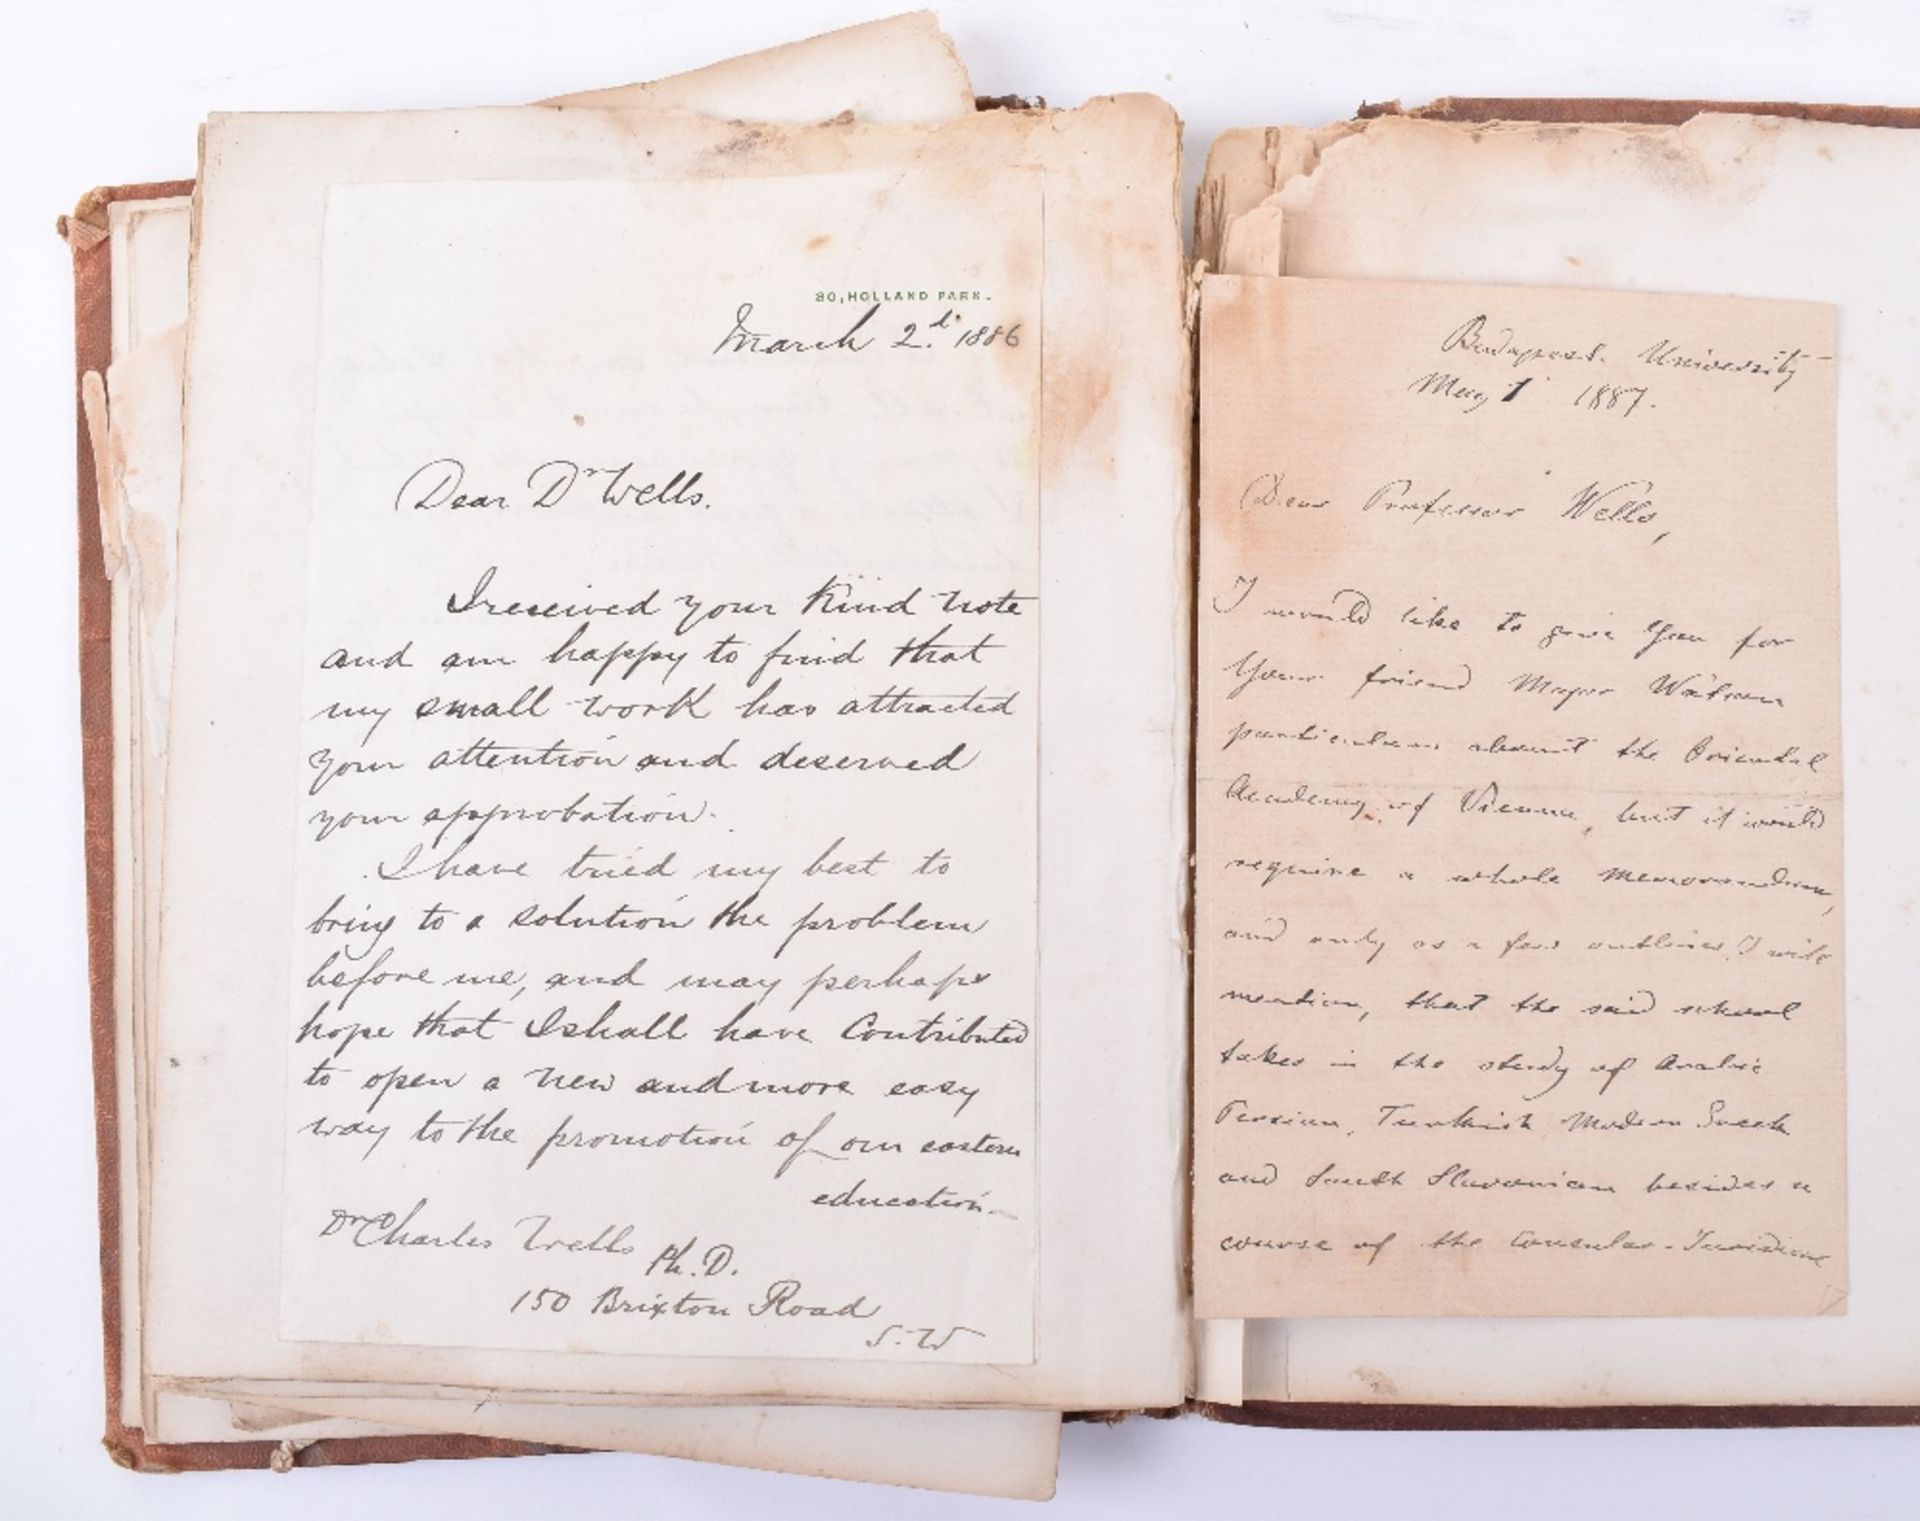 80, HOLLAND PARK.
March 2d. 1886
Dear Dr Wells.
I received your kind note
and am happy to find that
my small work has attracted
your attention and deserved
your approbation.
I have tried my best to
bring to a solution the problem
before me, and may perhaps
hope that I shall have Contributed
to open a new and more easy
way to the promotion of our eastern
education.
Dr Charles Wells Ph. D.
150 Brixton Road
S. W
Budapest. University
May 1 1887.
Dear Professor Wells,
I would like to give You for
Your friend Major Watson
particulars about the Oriental
Academy of Vienna, but it would
require a whole memorandum,
and only as a few outlines I will
mention, that the said school
takes in the study of Arabic
Persian, Turkish, Modern Greek
and South Slavonian besides a
course of the Consular-